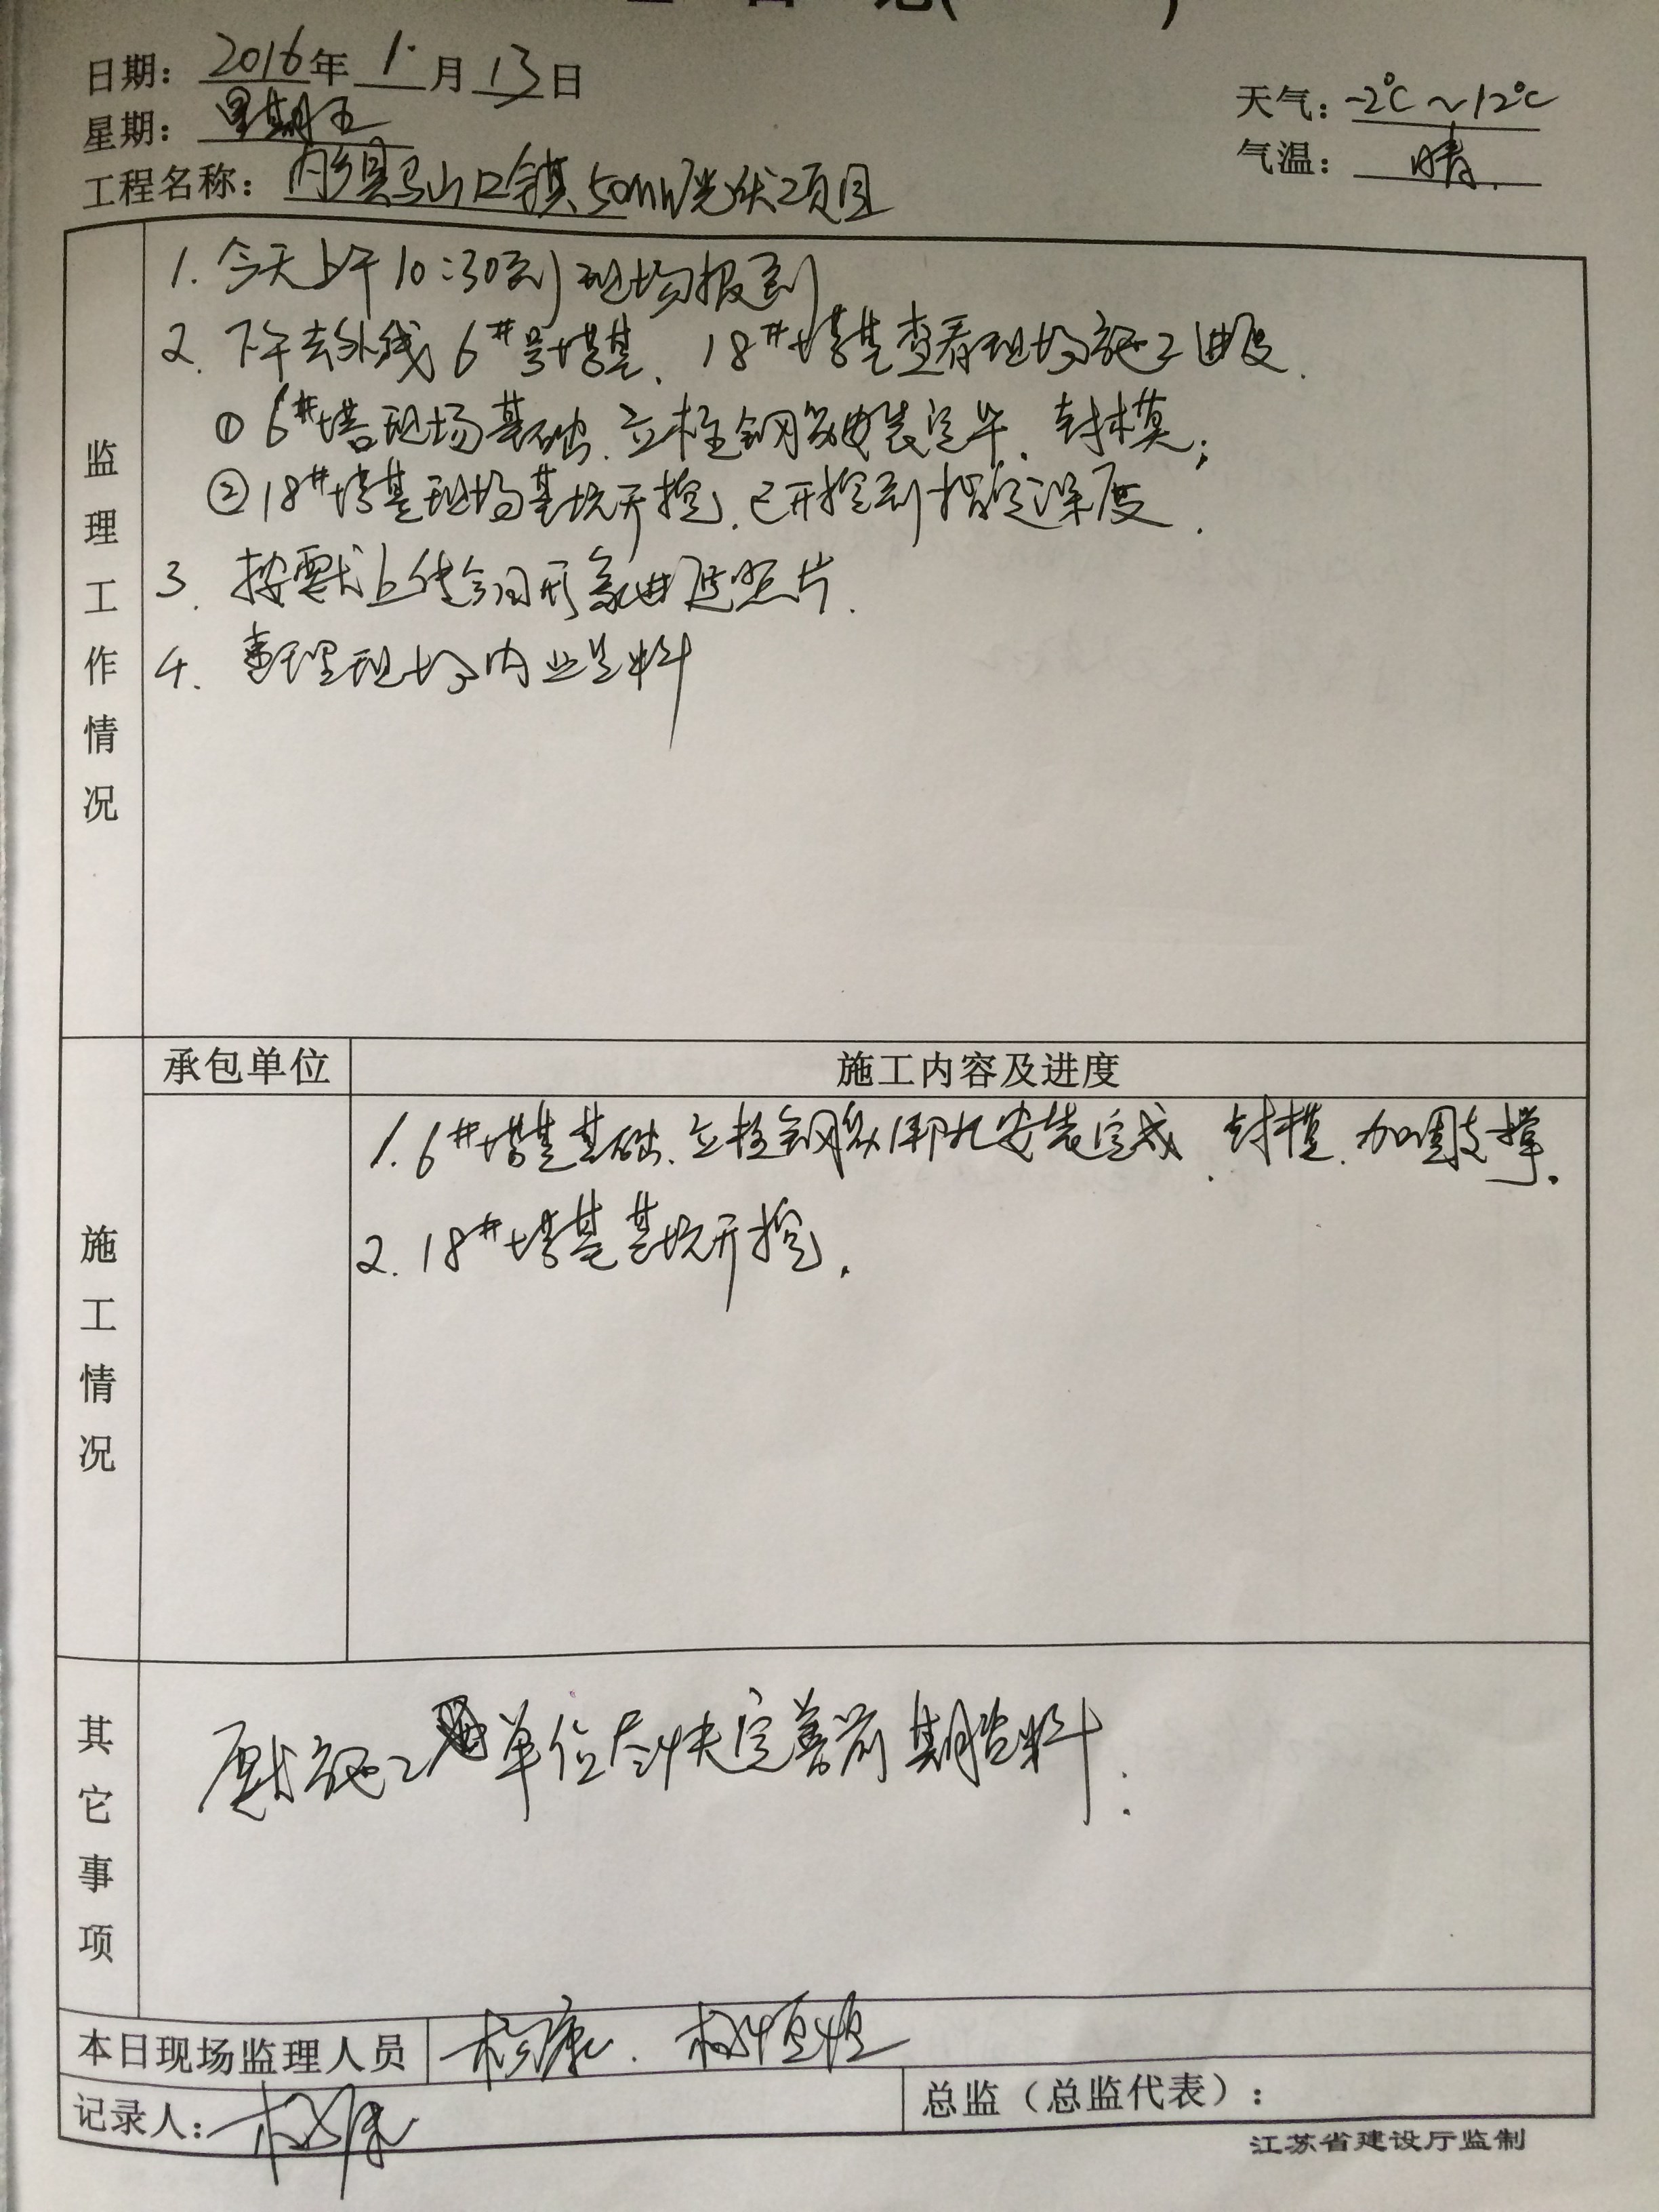 日期：2016年1月13日
天气：-2℃~12℃
星期：星期五
气温：晴.
工程名称：内乡县马山口镇50MW光伏项目
监理工作情况
1. 今天上午10:30到现场报到
2. 下午去外线6#号塔基、18#塔基查看现场施工进度.
①6#塔现场基础、立柱钢筋安装完毕、封模；
②18#塔基现场基坑开挖，已开挖到指定深度.
3. 按要求上传今日形象进度照片.
4. 查理现场内业资料
施工情况
承包单位 施工内容及进度
1. 6#塔基基础、立柱钢筋绑扎安装完成、封模、加固支撑.
2. 18#塔基基坑开挖.
其它事项
要求施工单位尽快完善前期资料.
本日现场监理人员
记录人：
总监（总监代表）：
江苏省建设厅监制